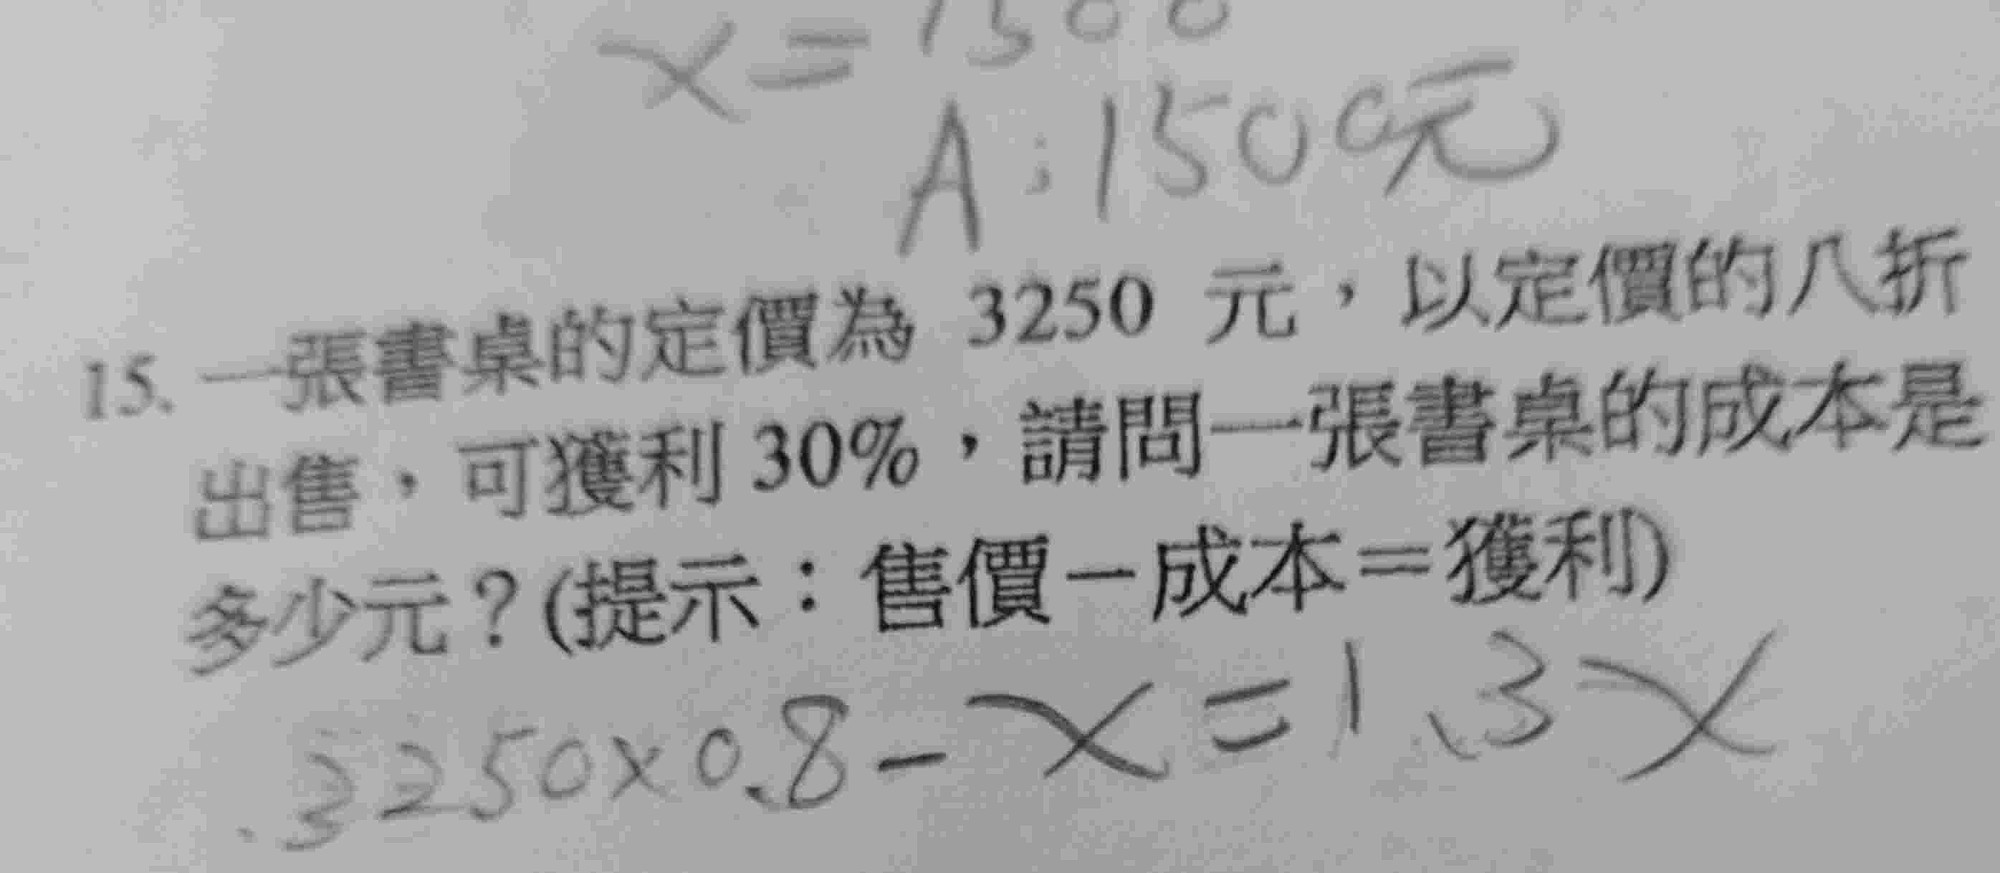 x=1500
A:1500元
15. 一張書桌的定價為 3250 元，以定價的八折
出售，可獲利 30%，請問一張書桌的成本是
多少元？(提示：售價－成本＝獲利)
3250×0.8-x=1.3x